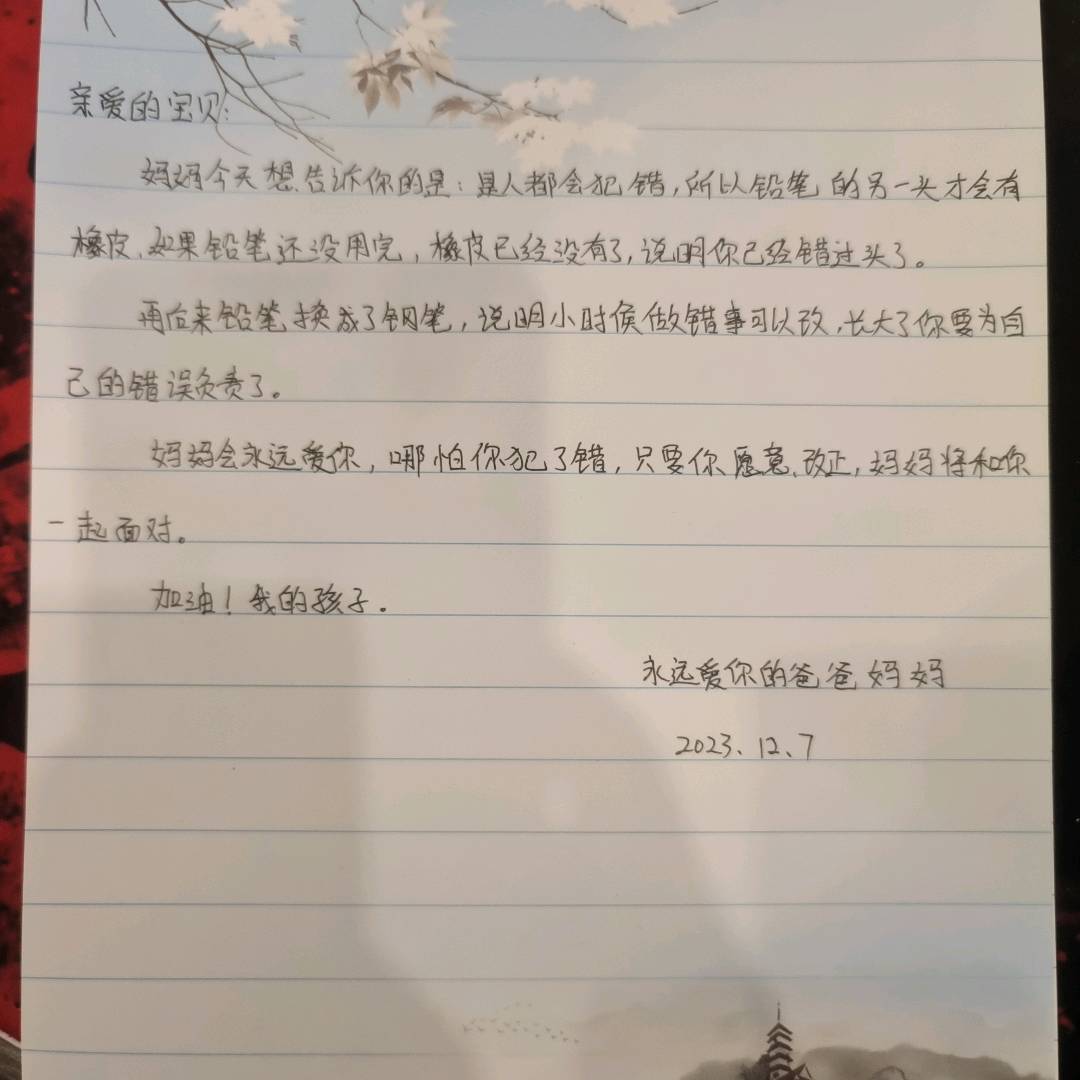 亲爱的宝贝:
妈妈今天想告诉你的是:是人都会犯错,所以铅笔的另一头才会有
橡皮.如果铅笔还没用完,橡皮已经没有了,说明你已经错过头了。
再后来铅笔换成了钢笔,说明小时侯做错事可以改,长大了你要为自
己的错误负责了。
妈妈会永远爱你,哪怕你犯了错,只要你愿意改正,妈妈将和你
一起面对。
加油!我的孩子.
永远爱你的爸爸妈妈
2023、12、7